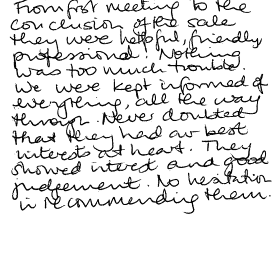 From first meeting to the
conclusion of the sale
they were helpful, friendly,
professional! Nothing
was too much trouble.
We were kept informed of
everything, all the way
through. Never doubted
that they had our best
interests at heart. They
showed interest and good
judgement. No hesitation
in recommending them.